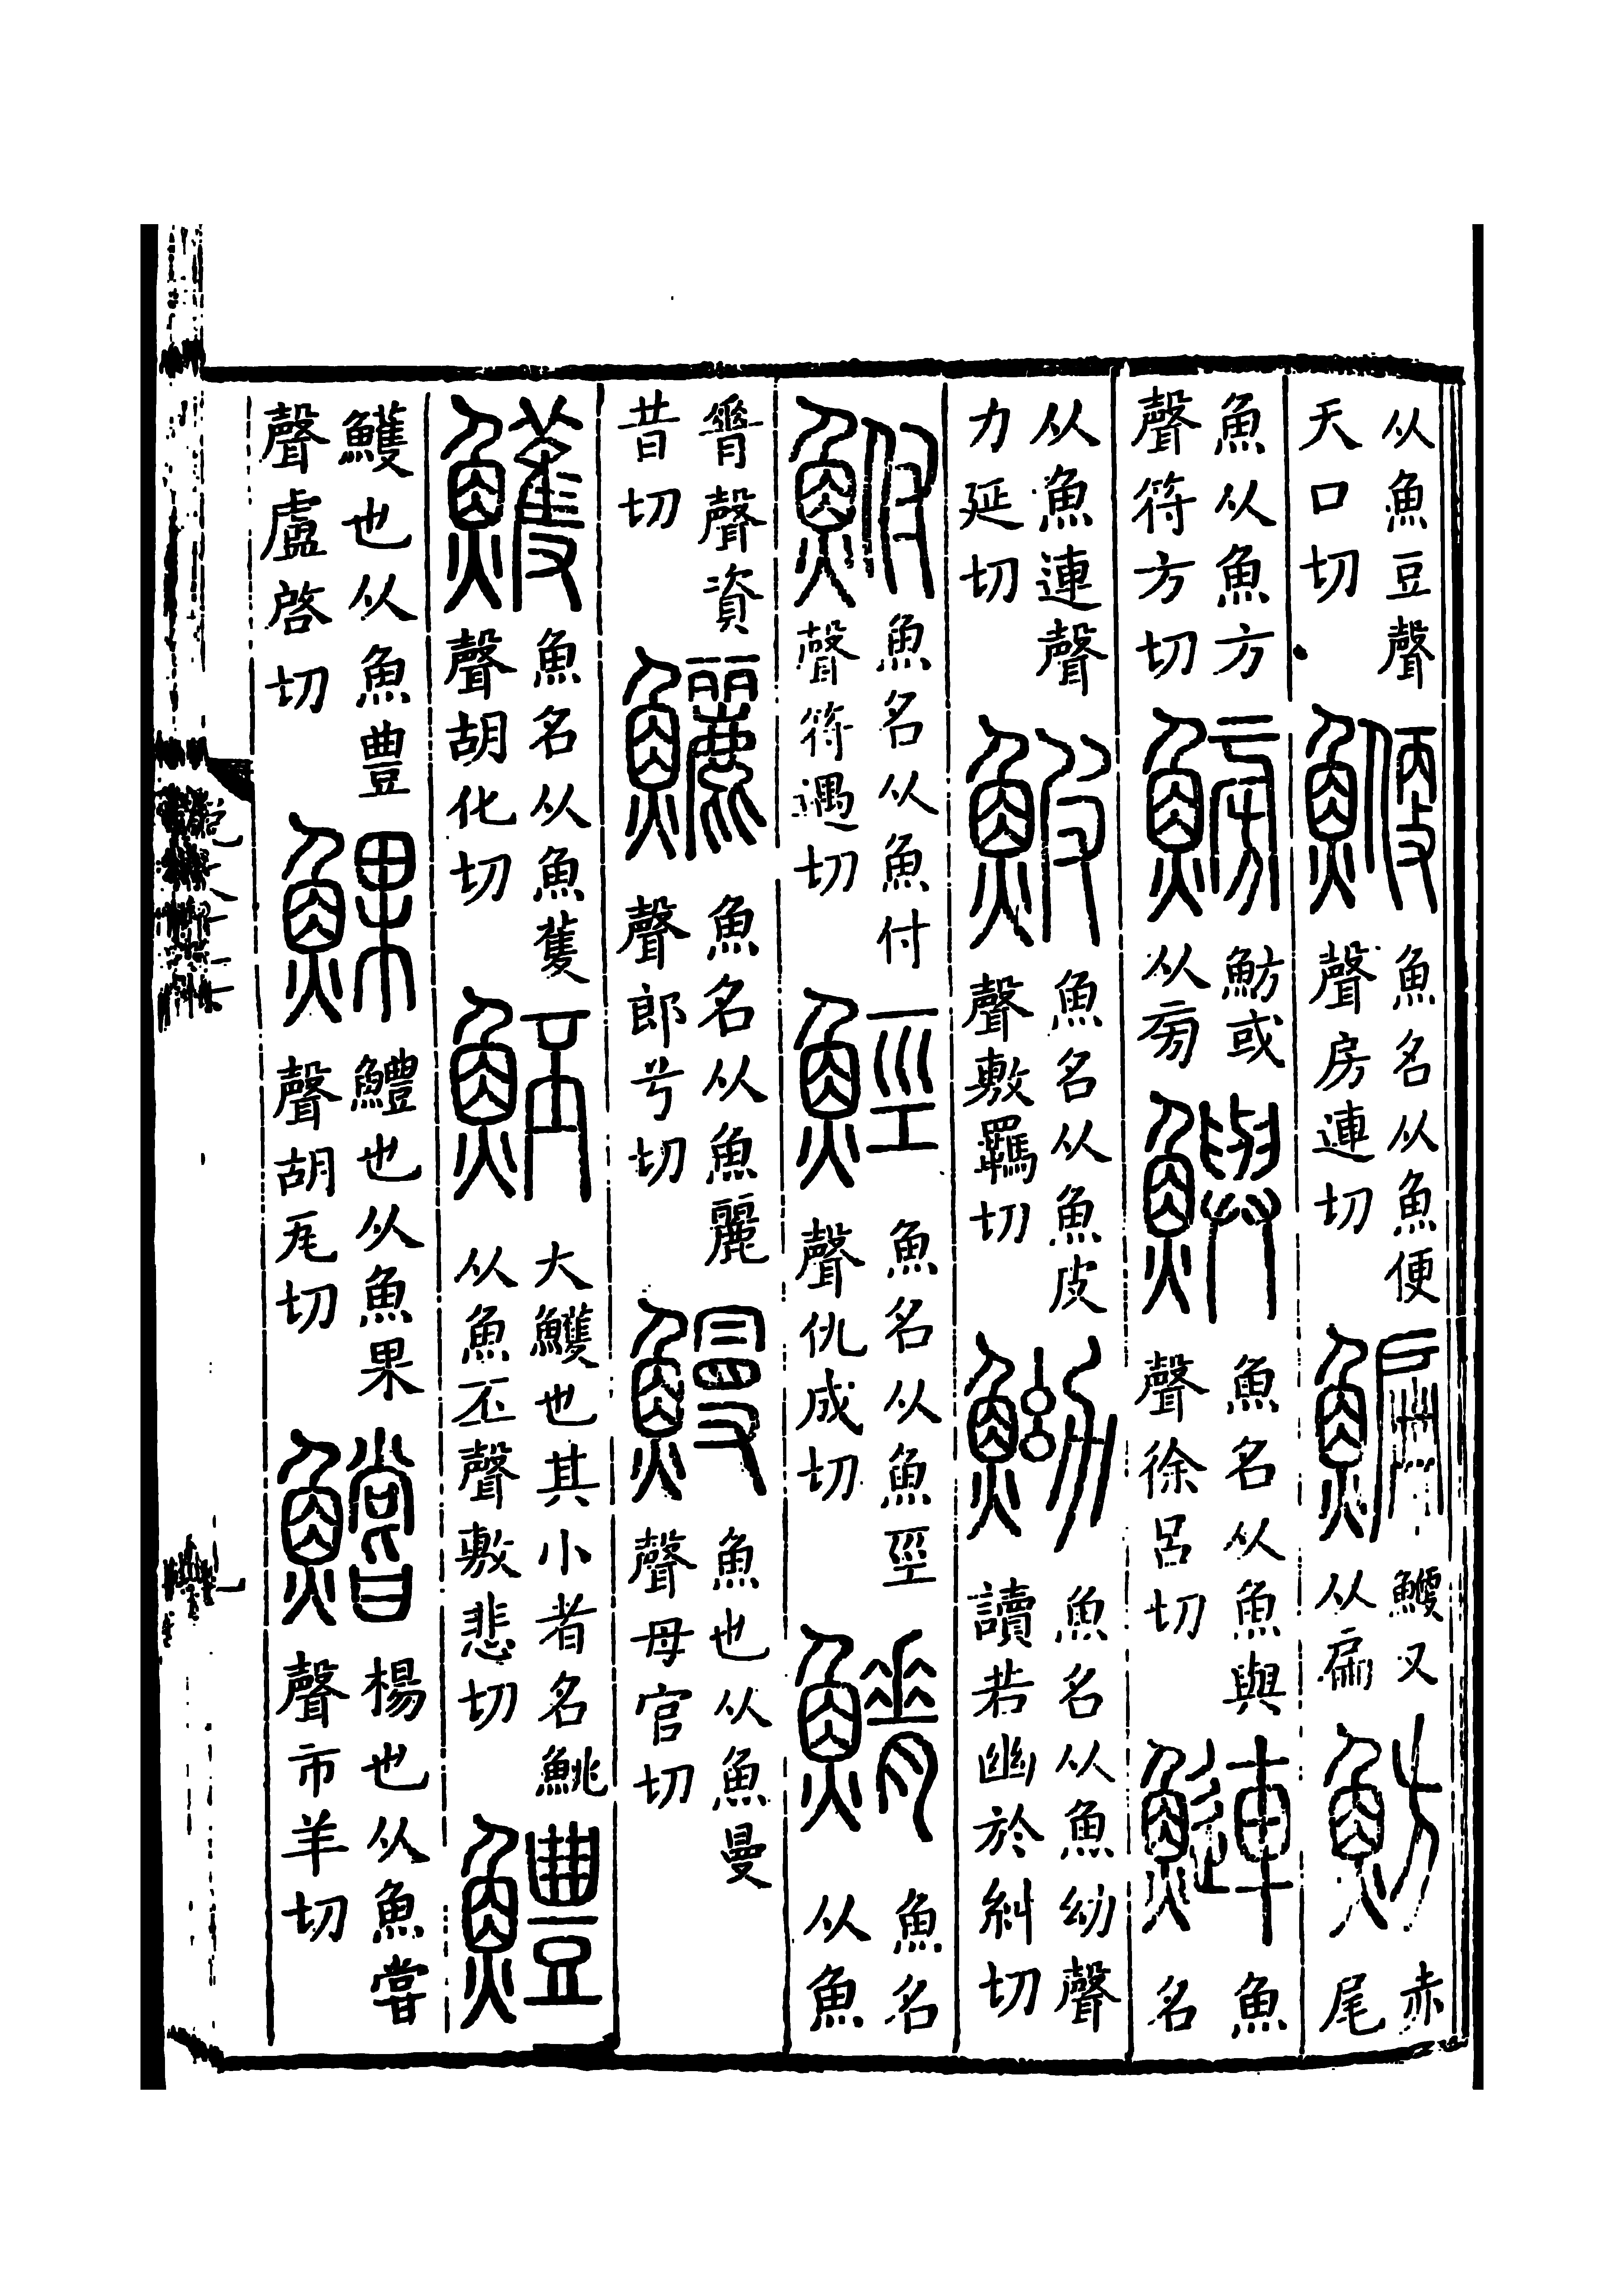 从魚豆聲天口切鯾魚名从魚便聲房連切鯿鯾又从扁魴赤尾
魚从魚方聲符方切鰟魴或从㫄鱮魚名从魚與聲徐呂切鰱魚名
从魚連聲力延切鮍魚名从魚皮聲敷羈切䱂魚名从魚幼聲讀若幽於糾切
鮒魚名从魚付聲符遇切䱓魚名从魚巠聲仇成切𩺀魚名从魚
脊聲資昔切鱺魚名从魚麗聲郎兮切鰻魚也从魚曼聲母官切
鱯魚名从魚蒦聲胡化切魾大鱯也其小者名鮡从魚丕聲敷悲切鱧
鱯也从魚豊聲盧啓切䱻鱧也从魚果聲胡瓦切鱨楊也从魚嘗聲市羊切